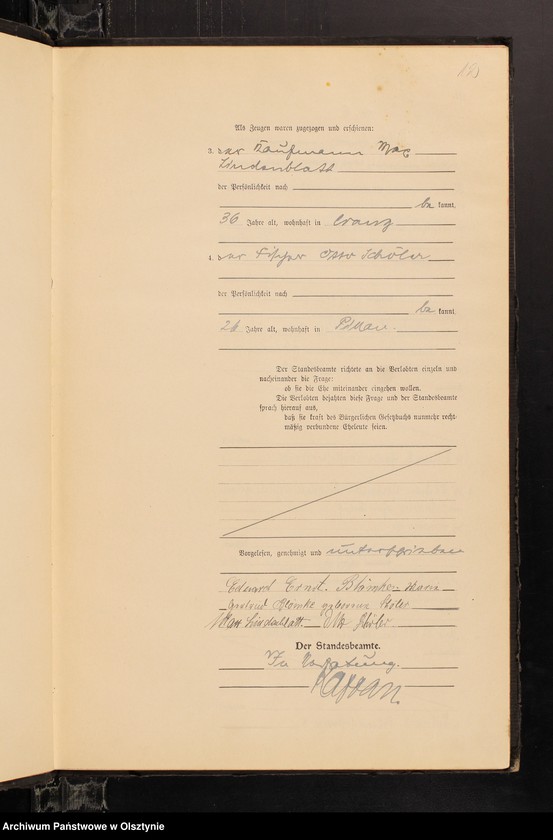 Als Zeugen waren zugezogen und erschienen:
3. der Kaufmann Max
Lindenblatt
der Persönlichkeit nach
be kannt,
36 Jahre alt, wohnhaft in Cranz
4. der Fischer Otto Schöler
der Persönlichkeit nach
be kannt,
Jahre alt, wohnhaft in Pillau.
Der Standesbeamte richtete an die Verlobten einzeln und
nacheinander die Frage:
ob sie die Ehe miteinander eingehen wollen.
Die Verlobten bejahten diese Frage und der Standesbeamte
sprach hierauf aus,
daß sie kraft des Bürgerlichen Gesetzbuchs nunmehr recht-
mäßig verbundene Eheleute seien.
Vorgelesen, genehmigt und unterschrieben
Eduard Ernst Blömke. Maria
Blömke geborene
Max Lindenblatt. Otto Schöler
Der Standesbeamte.
In Vertretung.
Archiwum Państwowe w Olsztynie